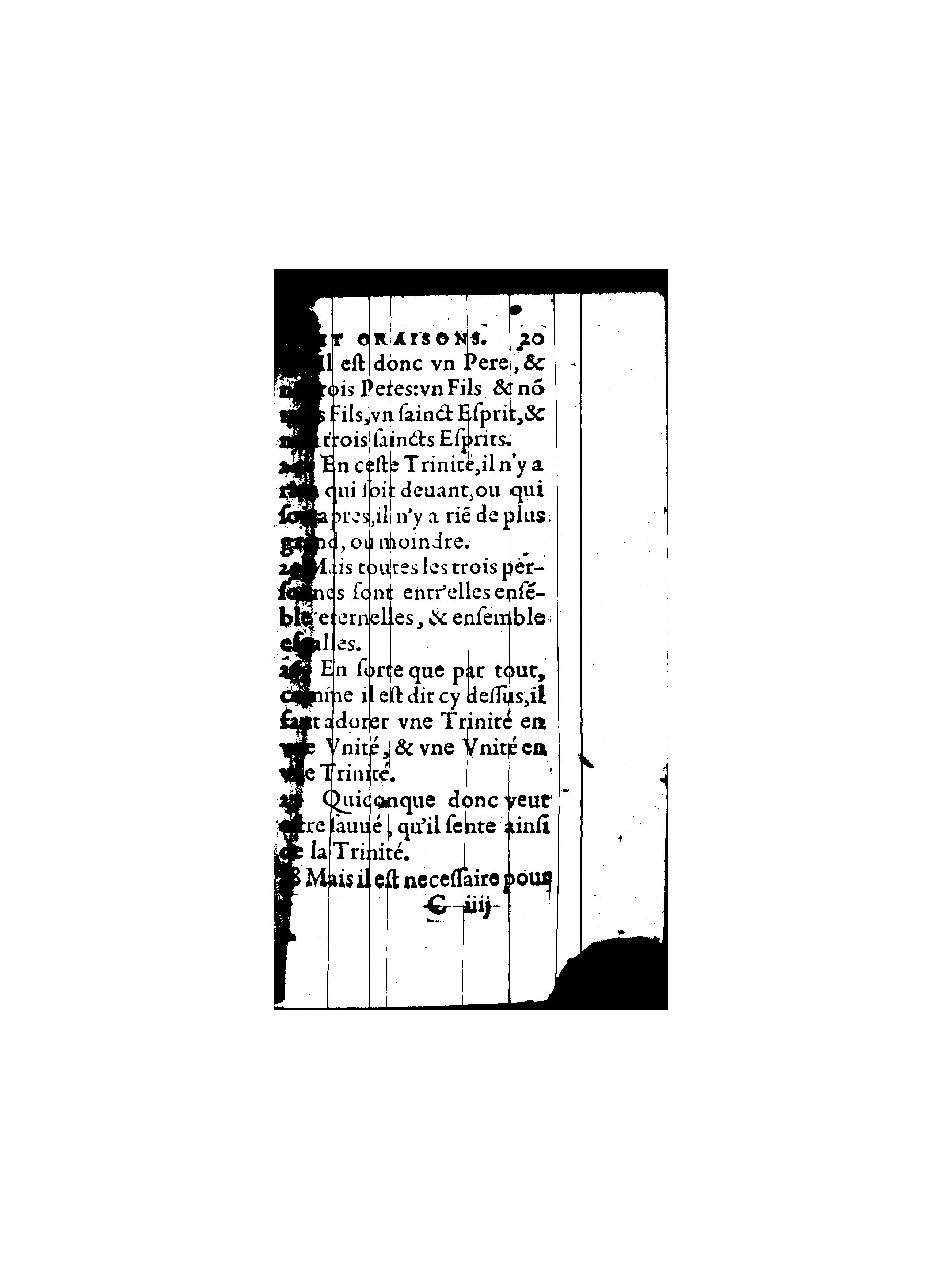 ET ORAISONS. 20
Il est donc vn Pere, &
trois Peres:vn Fils & nõ
Fils,vn ſainct Eſprit,&
trois ſaincts Eſprits.
En ceſte Trinité,il n'y a
rien qui ſoit deuant,ou qui
ſoit apres,il n'y a riẽ de plus
grand, ou moindre.
Mais toutes les trois per-
ſonnes ſont entr'elles enſẽ-
ble eternelles, & enſemble
eſgalles.
26 En ſorte que par tout,
comme il eſt dit cy deſſus,il
faut adorer vne Trinité en
vne Vnité, & vne Vnité en
vne Trinité.
27 Quiconque donc veut
eſtre ſauué, qu'il ſente ainſi
de la Trinité.
28 Mais il eſt neceſſaire pour
C iiij